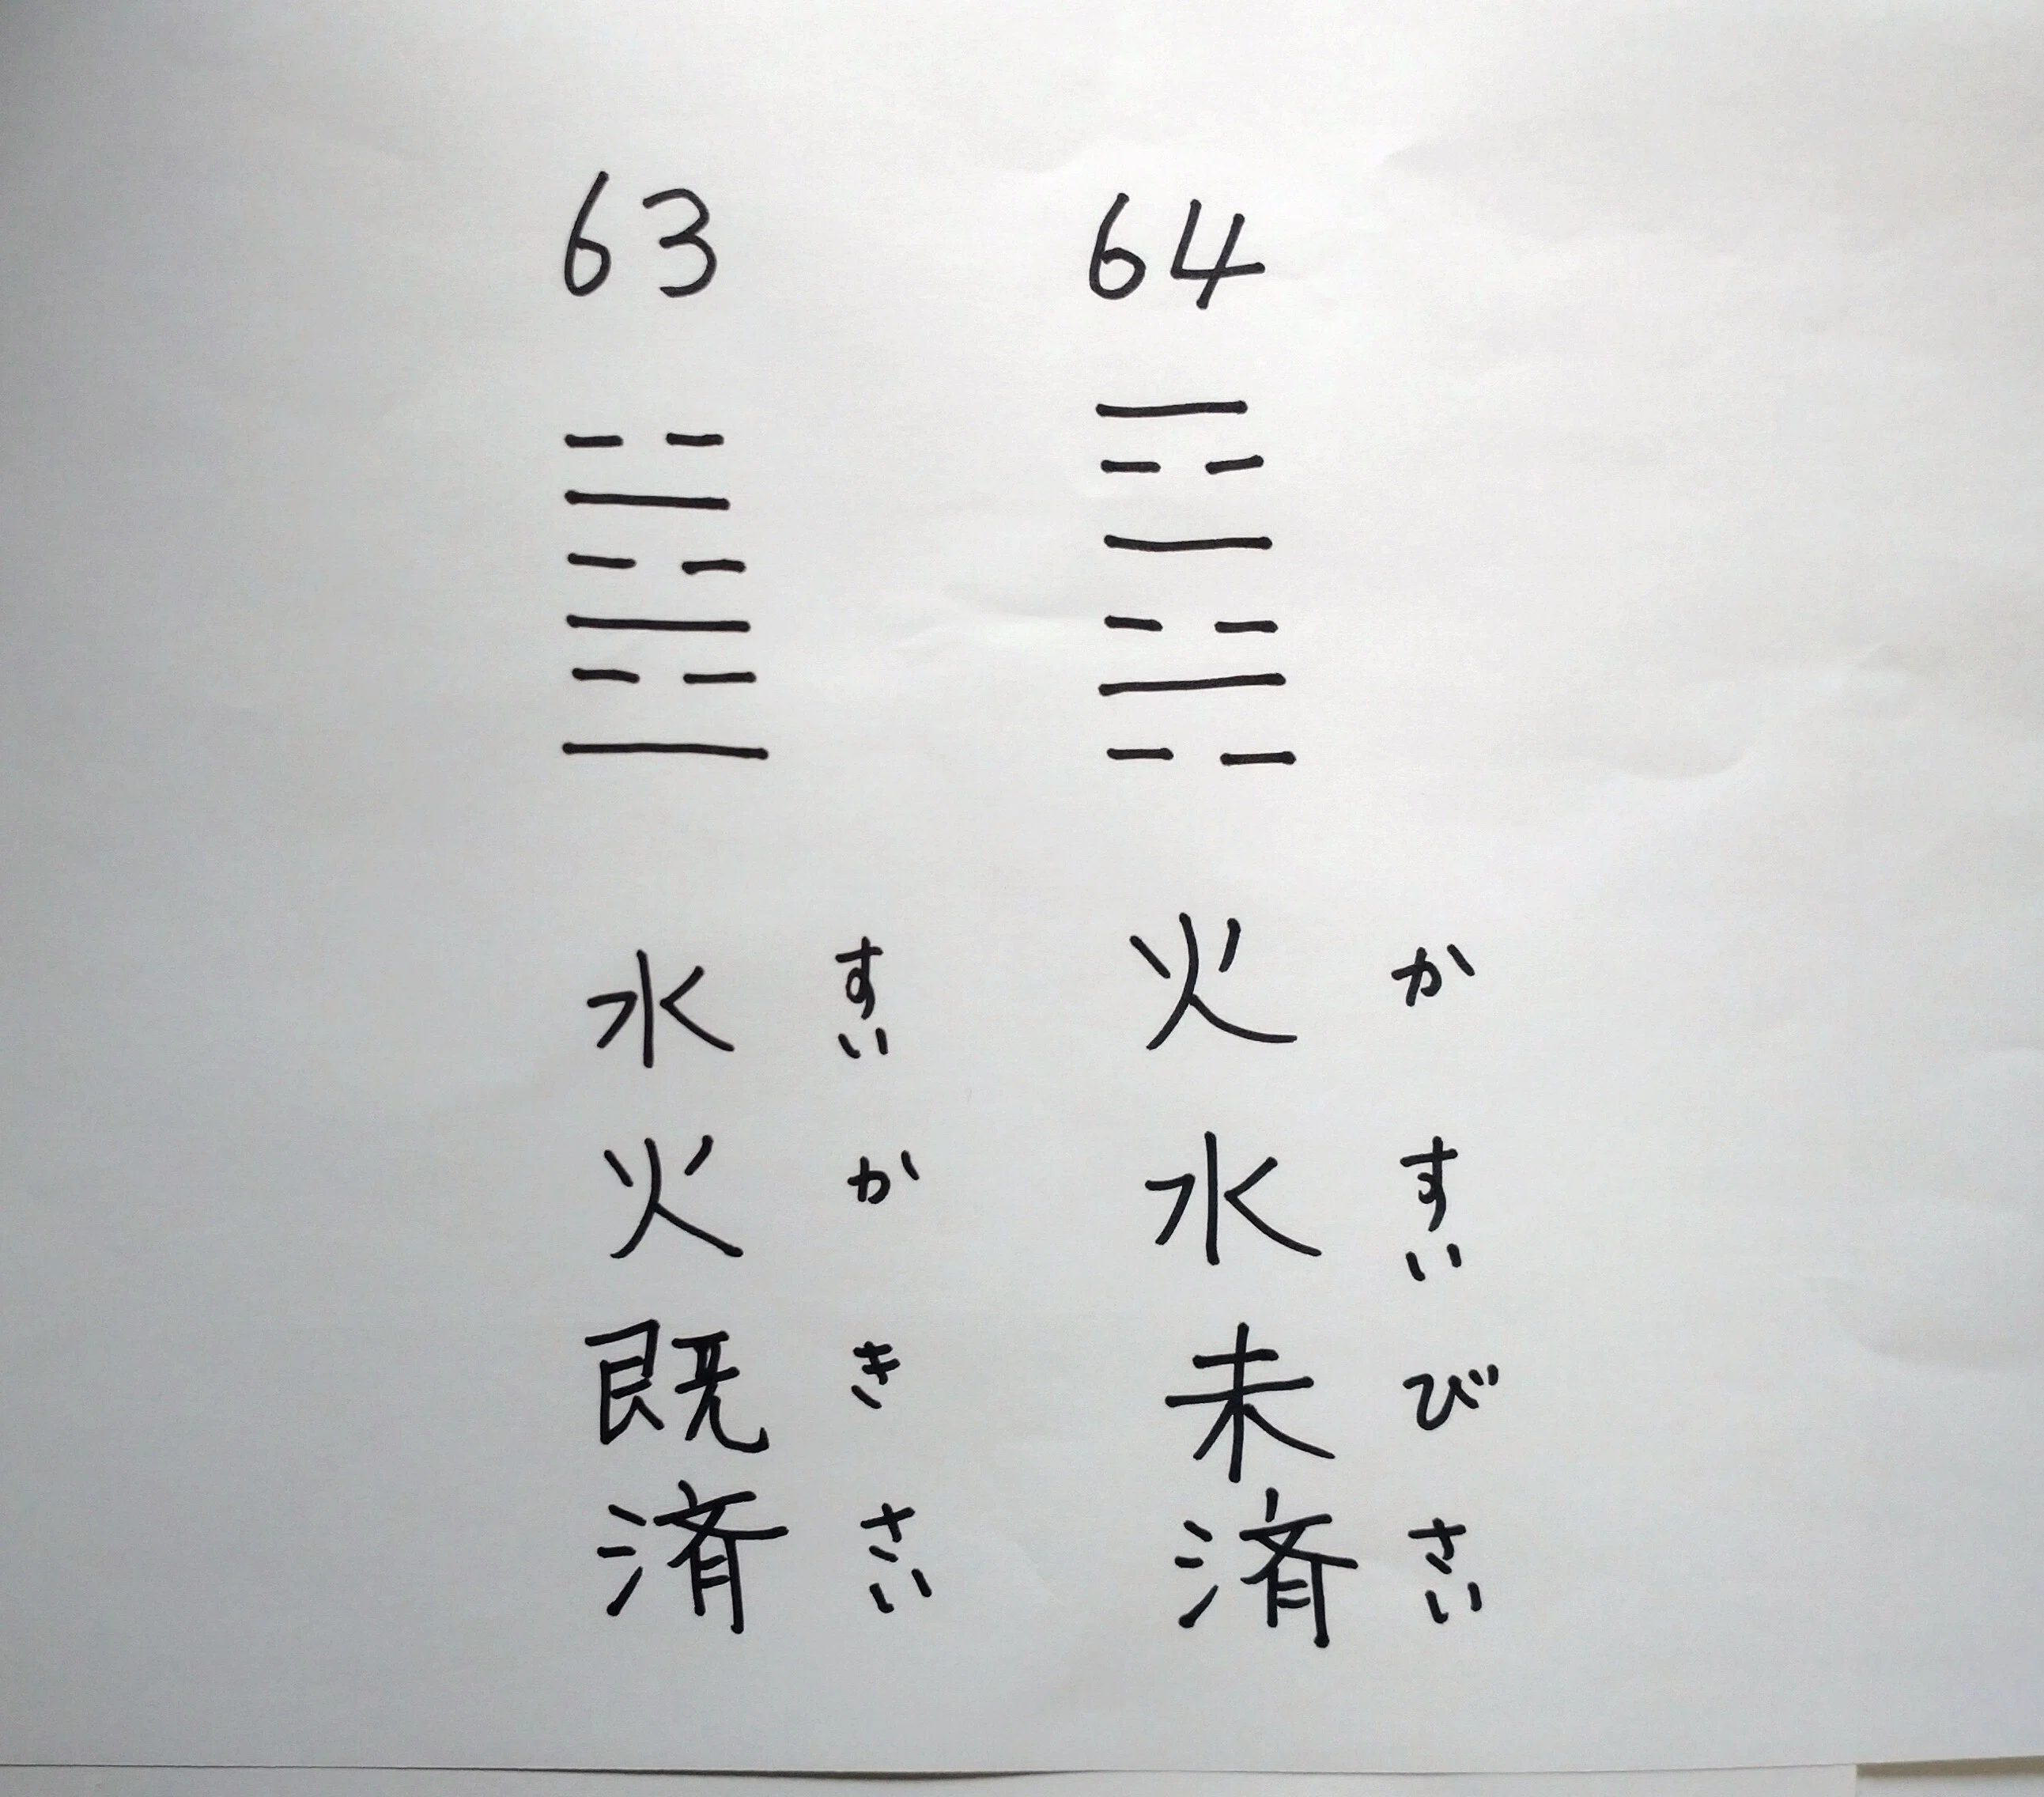 63
水火既済
すいかきさい
64
火水未済
かすいびさい